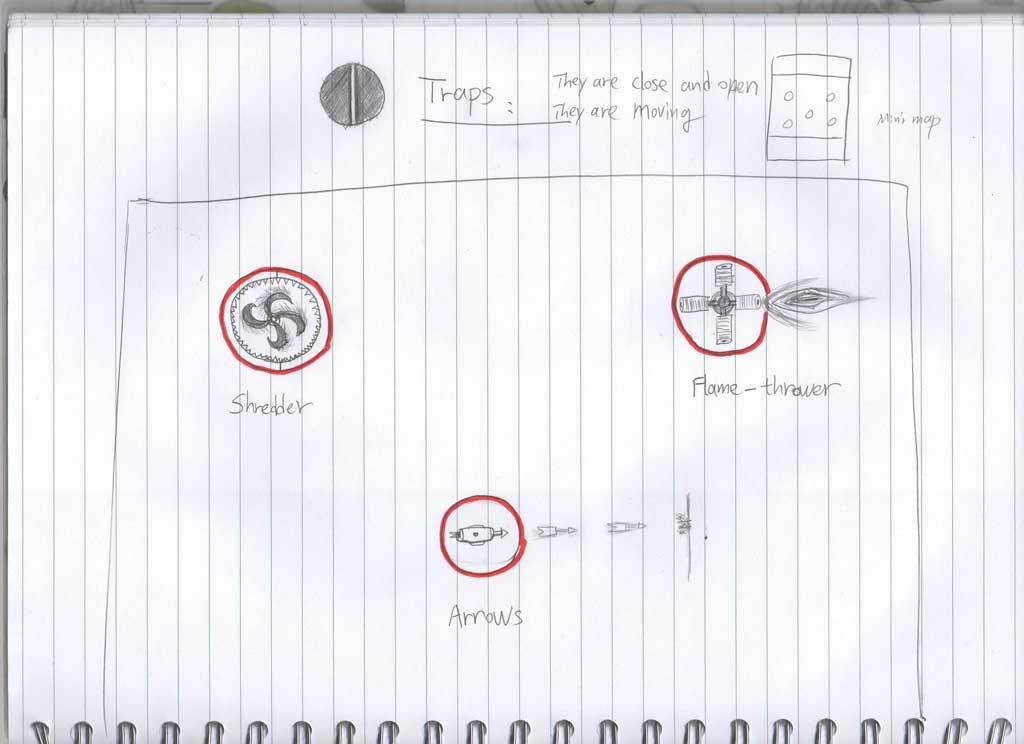 Traps:
They are close and open
They are moving
Mini map
Shredder
Flame-thrower
Arrows